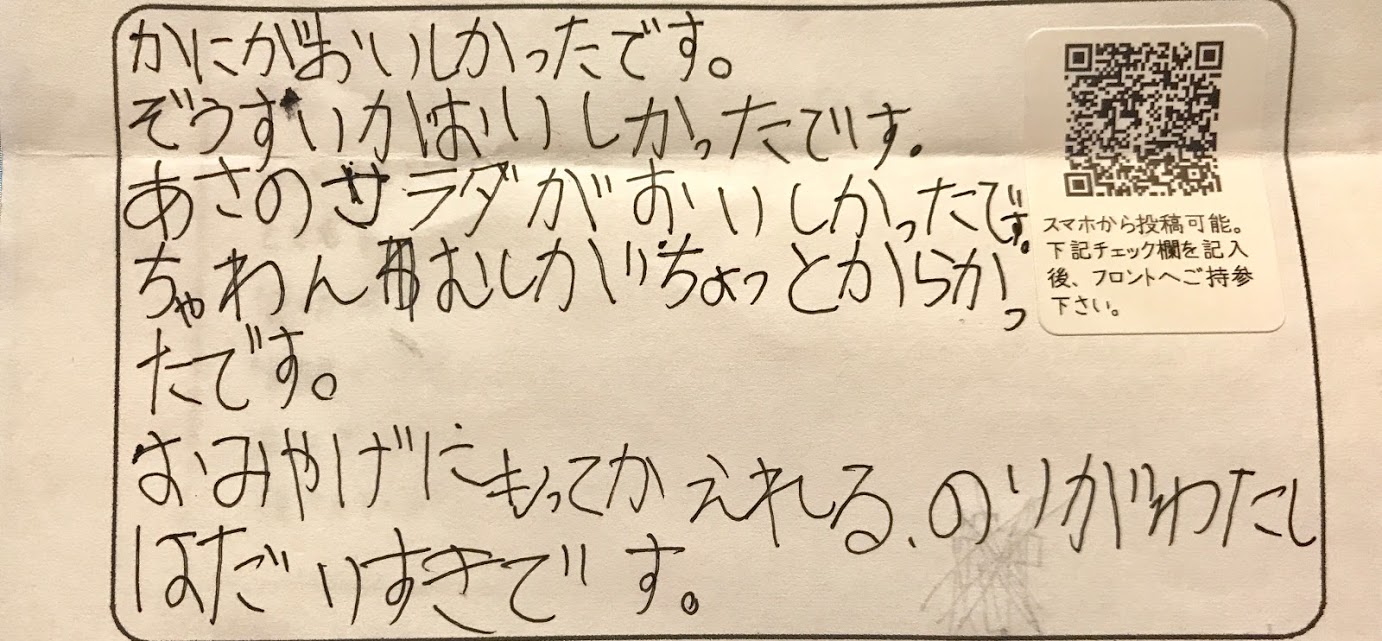 かにがおいしかったです。
ぞうすいがおいしかったです。
あさのサラダがおいしかったです。
ちゃわんむしがちょっとからかっ
たです。
おみやげにもってかえれる、のりがわたし
はだいすきです。
スマホから投稿可能。
下記チェック欄を記入
後、フロントへご持参
下さい。